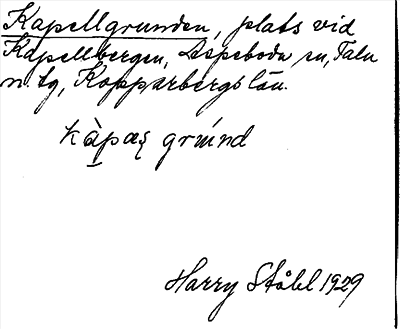 Kapellgrunden, plats vid
Kapellbergen, Aspeboda sn, Falu
n. tg, Kopparbergs län.
kàpaʂ grúnd
Harry Ståhl 1929